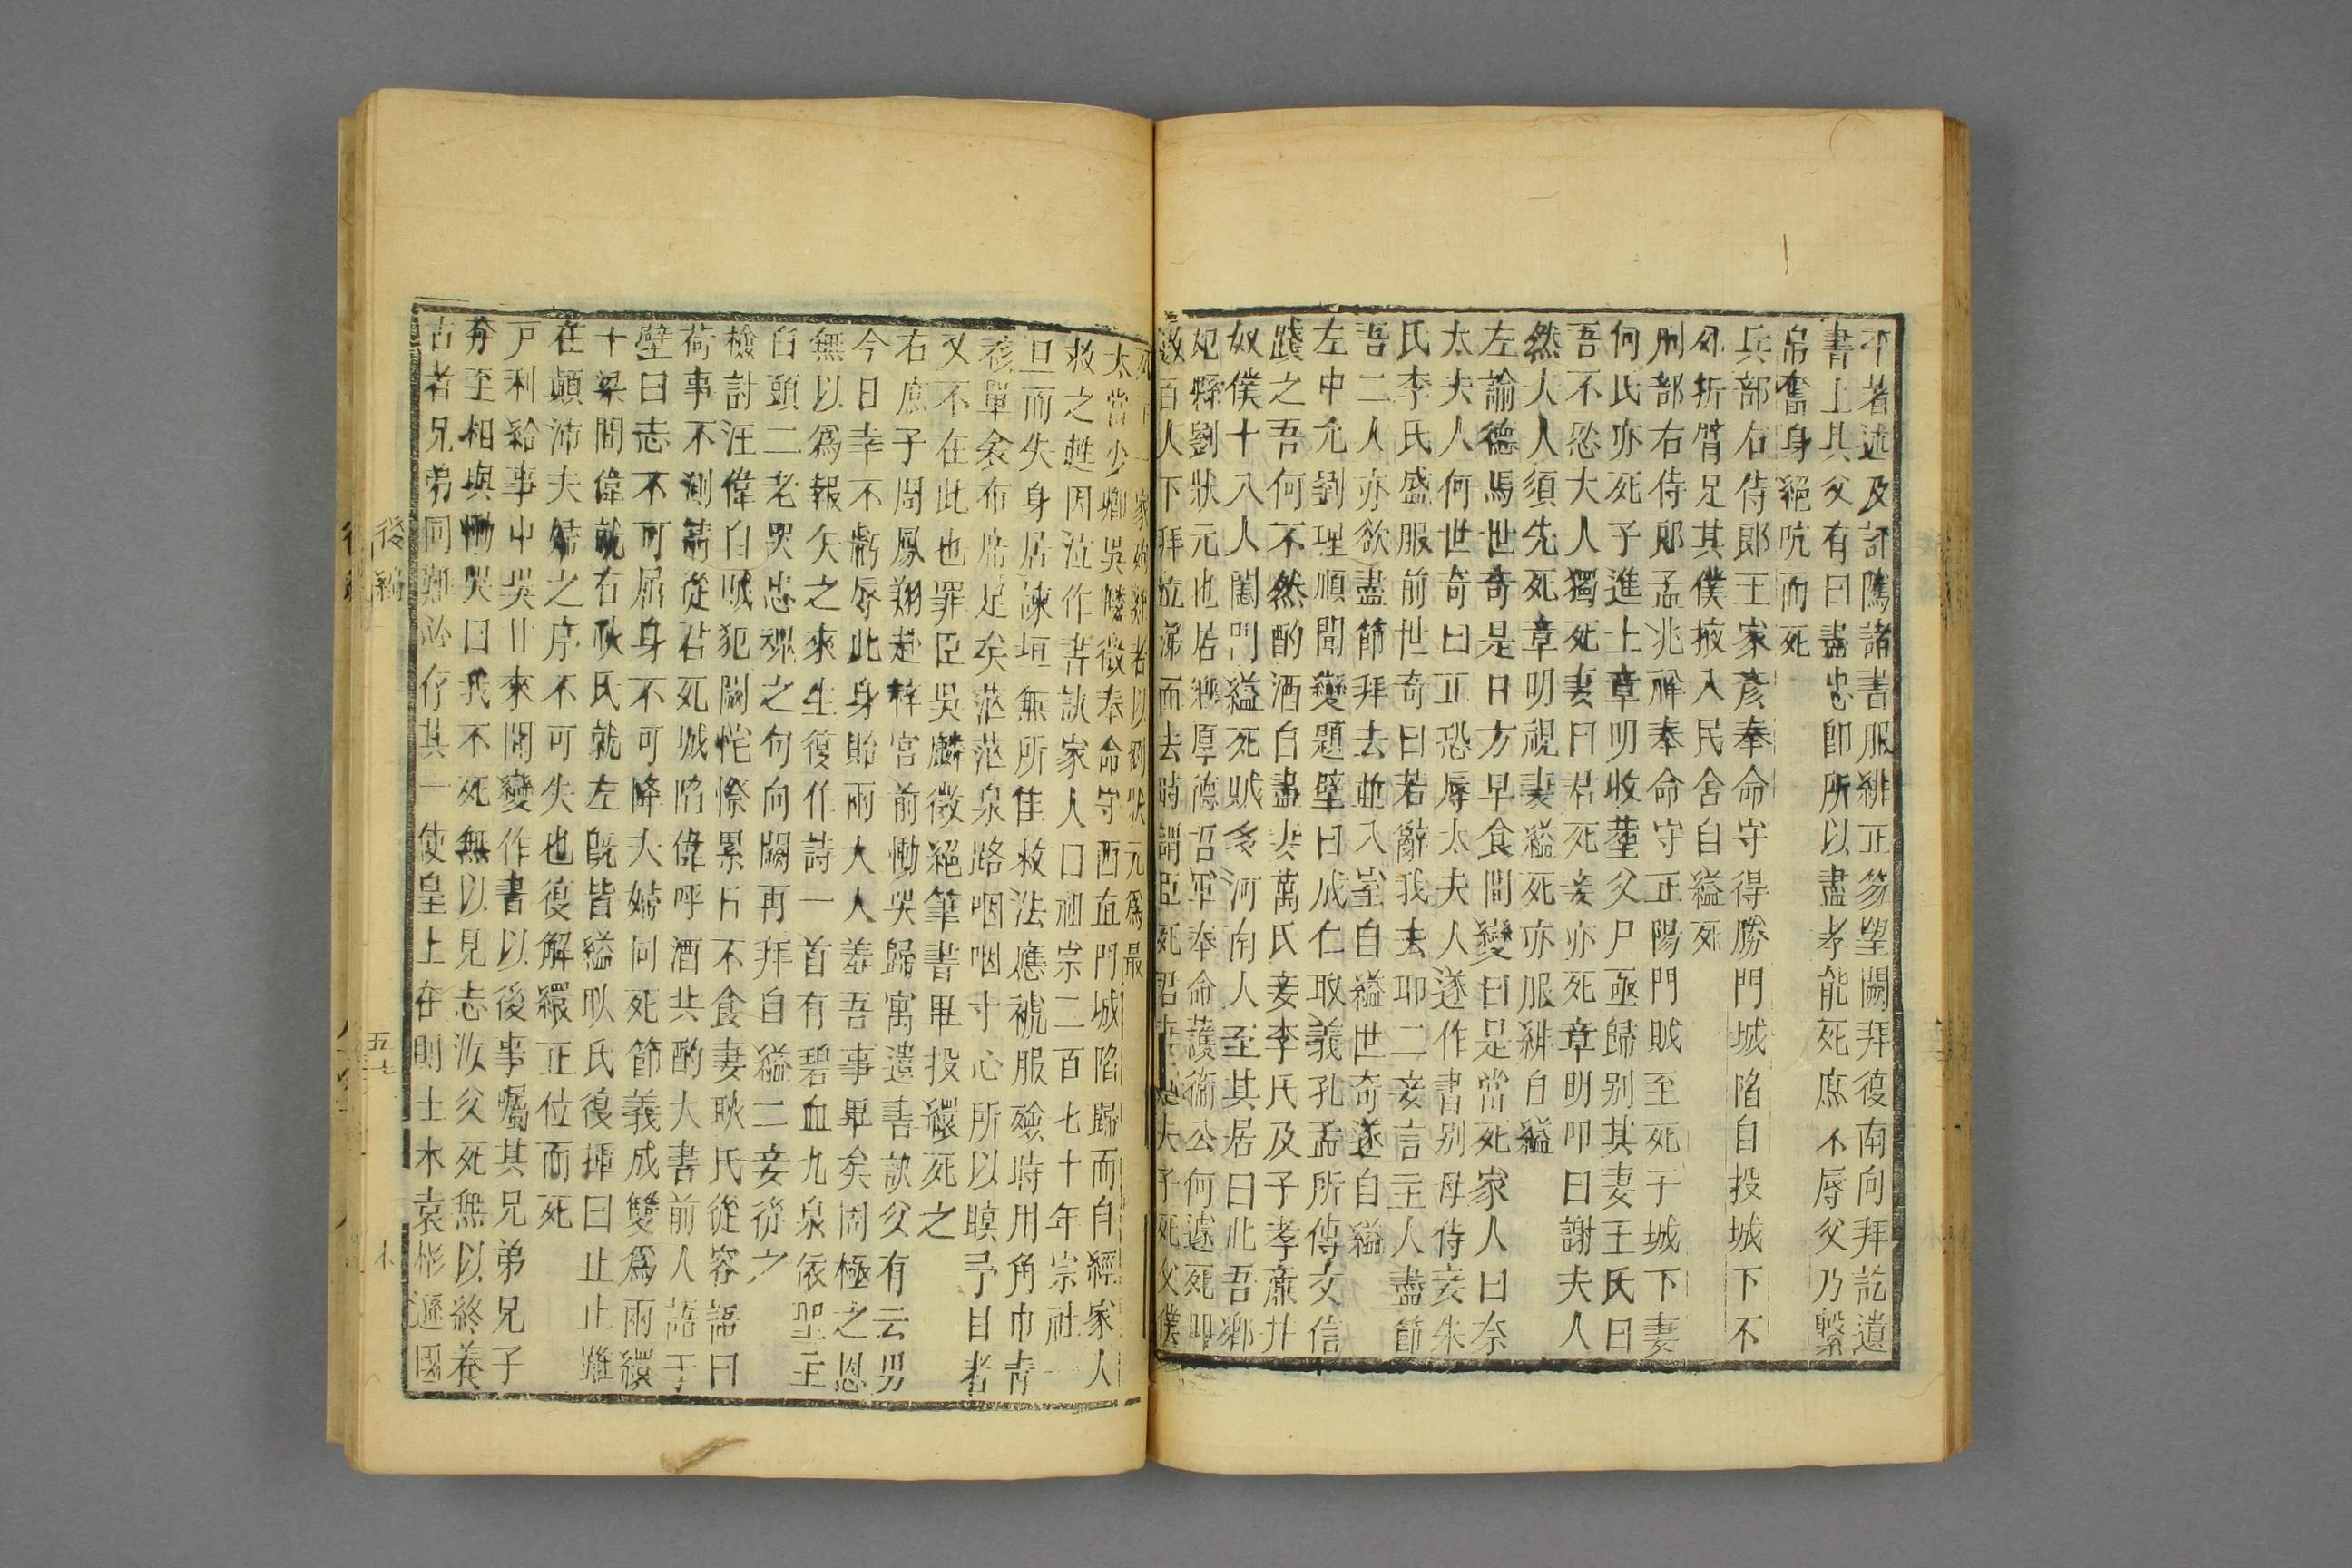 平著述及評隲諸書服緋正笏望闕拜復南向拜訖遺
書上其父有曰盡忠即所以盡孝能死庶不辱父乃繫
帛奮身絕吭而死
兵部右侍郎王家彥奉命守得勝門城陷自投城下不
死折臂足其僕掖入民舍自縊死
刑部右侍郎孟兆祥奉命守正陽門賊至死于城下妻
何氏亦死子進士章明收葬父尸亟歸別其妻王氏曰
吾不忍大人獨死妻曰君死妾亦死章明叩曰謝夫人
然夫人須先死章明視妻縊死亦服緋自縊
左諭德馬世奇是日方早食聞變曰是當死家人曰奈
太夫人何世奇曰正恐辱太夫人遂作書別母侍妾朱
氏李氏盛服前世奇曰若辭我去耶二妾言主人盡節
吾二人亦欲盡節拜去並入室自縊世奇遂自縊
左中允劉理順聞變題壁曰成仁取義孔孟所傳文信
踐之吾何不然酌酒自盡妻萬氏妾李氏及子孝廉并
奴僕十八人闔門縊死賊多河南人至其居曰此吾鄉
杞縣劉狀元也居鄉厚德召軍奉命護衛公何遽死即
數百人下拜泣涕而去時謂臣死君妻死夫子死父僕
死主一家殉難者以劉狀元為最
太常少卿吳麟徵奉命守西直門城陷歸而自經家人
救之甦因泣作書訣家人曰祖宗二百七十年宗社一
旦而失身居諫垣無所匡救法應褫服殮時用角巾青
衫單衾布席足矣茫茫泉路咽咽寸心所以瞑予目者
又不在此也罪臣吳麟徵絕筆書畢投繯死之
右庶子周鳳翔赴梓宮前慟哭歸寓遺書訣父有云男
今日幸不虧辱此身貽兩大人羞吾事畢矣罔極之恩
無以為報矢之來生復作詩一首有碧血九泉依聖主
白頭二老哭忠魂之句向闕再拜自縊二妾從之
檢討汪偉自賊犯闕侘傺累月不食妻耿氏從容語曰
苟事不測請從君死城陷偉呼酒共酌大書前人語于
壁曰志不可屈身不可降夫婦同死節義成雙為兩繯
于梁間偉就右耿氏就左旣皆縊耿氏復揮曰止止雖
在顛沛夫婦之序不可失也復解繯正位而死
戶科給事中吳甘來聞變作書以後事囑其兄弟兄子
奔至相與慟哭曰我不死無以見志汝父死無以終養
古者兄弟同難必存其一使皇上在則土木袁彬遜國
後編
五七